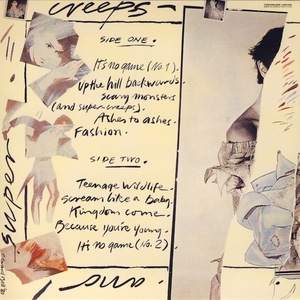 creeps
SIDE ONE.
It's no game (No. 1).
up the hill backwards.
scary monsters
(and super creeps).
Ashes to ashes.
Fashion.
SIDE TWO.
Teenage Wildlife.
scream like a baby.
Kingdom come.
Because you're young.
It's no game (No. 2)
super
and